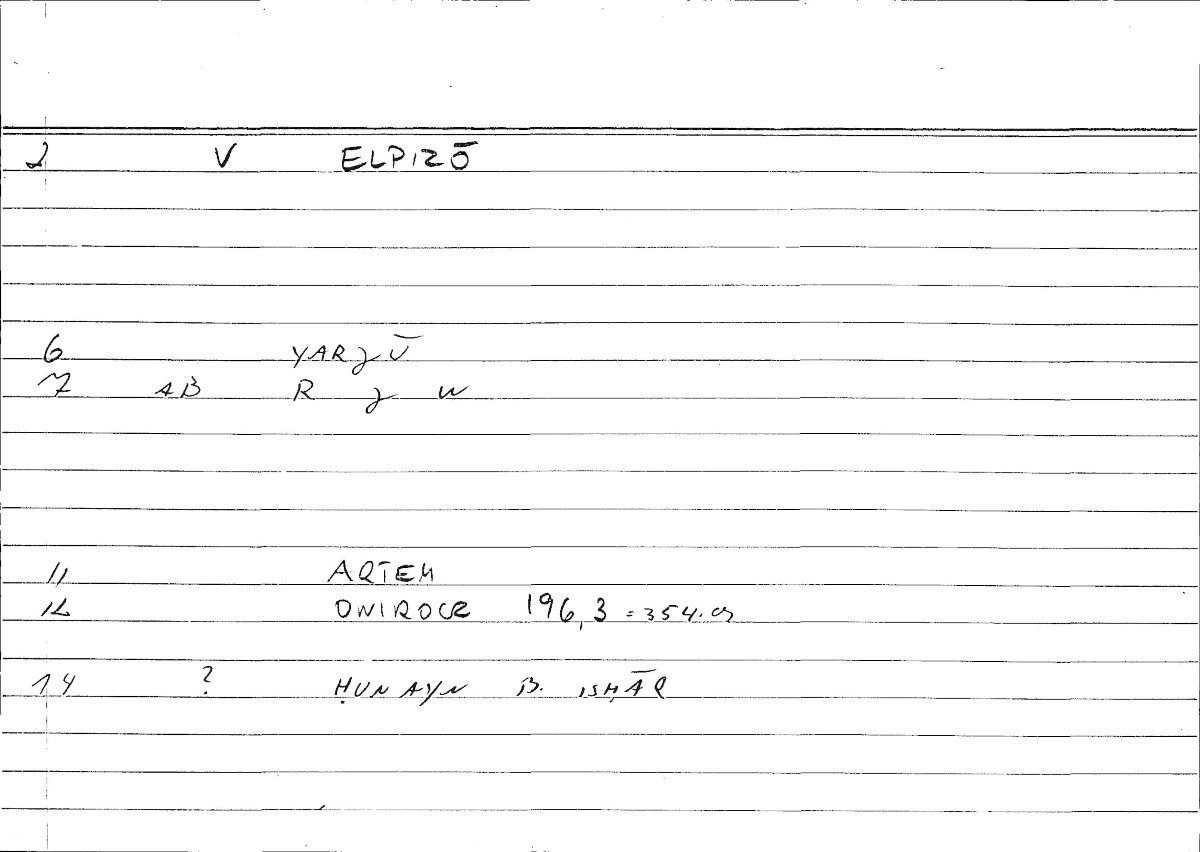 2 V ELPIZŌ
6 YARǧŪ
7 AB R ǧ W
11 ARTEM
12 ONIROCR 196,3 = 354.
14 ? ḤUNAYN B. ISḤĀQ